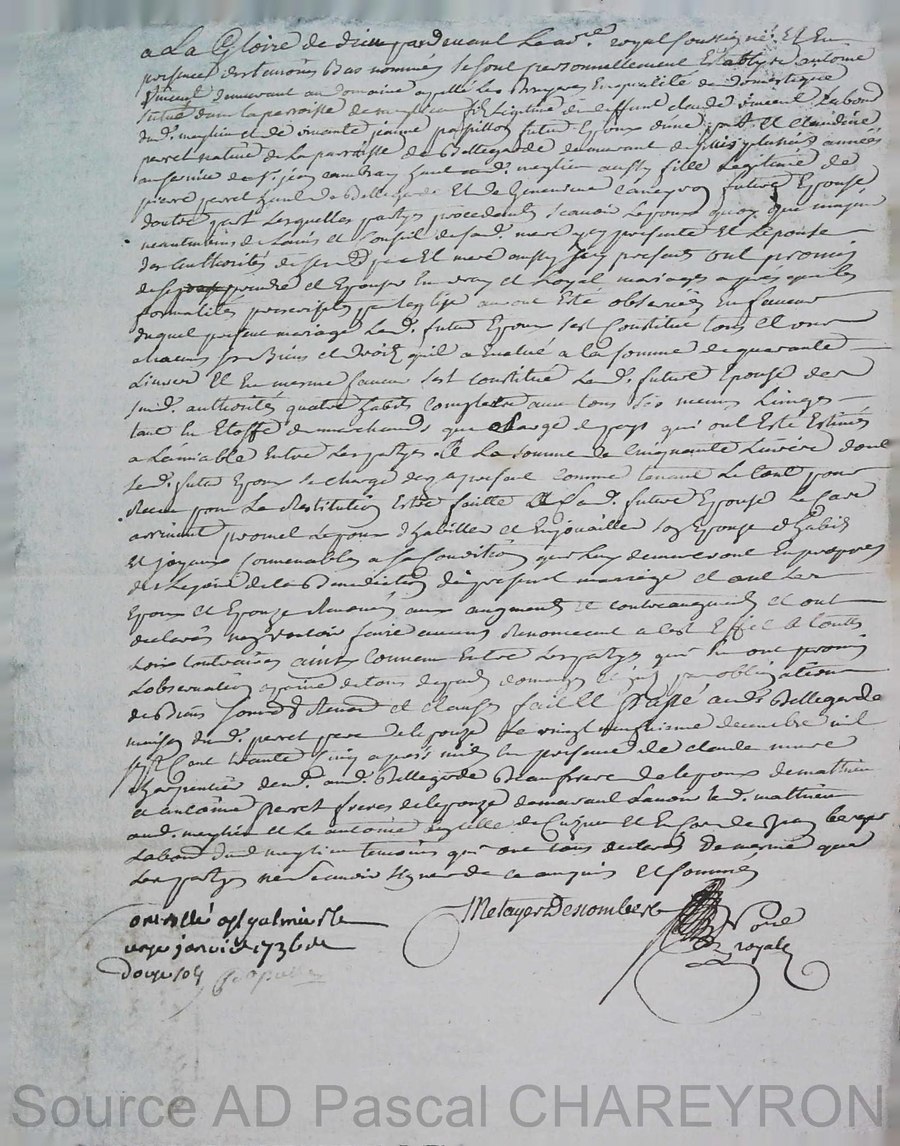 a La Gloire de dieu pardevant Le nore royal soussigné Et En
presence des temoins Bas nommes se sont personnellement Etablys antoine
vincent demeurant au domaine appellé Les Bruyeres En qualité de domestique
situé dans la parroisse de meylieu fils Legitime de deffunt claude vincent Labour
du d. meylieu et de vivante jeanne papillon futur Epoux d'une part Et Claudine
peret native de La parroisse de Bellegarde demeurant depuis plusieurs années
au service de sr jean cambray aud. meylieu aussy fille Legitime de
pierre peret de Bellegarde Et de Genevieve chareyron future Epouse
dautre part Lesquelles partyes procedants scavoir Lepoux quoy que majeur
neantmoins de Lavis et Conseil de sad. mere icy presente Et Lepouse
des authorités de ses d. pere Et mere aussy icy presents ont promis
de se prendre et Epouser En vray et Loyal mariage apres que les
formalités prescriptes par leglise auront Eté observées En faveur
duquel present mariage Le d. futur Epoux sest Constitué tous et uns
chacuns ses Biens et droits quil a Evalué a la somme de quarante
Livres Et En mesme faveur sest constitué Lad. future Epouse des
susd. authorités quatre habits complets avec tous ses menus Linges
tant En Etoffe de marchands que du pays qui ont Esté Estimés
a Lamiable Entre Les partyes a La somme de Cinquante Livres dont
le d. futur Epoux se charge des a present comme tenant Le tout pour
Receu pour La Restitution Estre faitte a Lad. future Epouse Le cas
arrivant promet Lepoux d'habiller et Enjouailler son Epouse d'habits
Et joyaux convenables a sa Condition que Luy demeureront En propres
des Le jour de la Benediction du present mariage et ont Les
Epoux et Epouze Renoncés aux augments et contreaugments et ont
declarés ny vouloir faire aucuns Renonceant a cest Effet a touttes
Loix Contraires ainsy Convenu Entre Les partyes qui En ont promis
Lobservation a peine de tous depens dommages et par obligations
de Biens Renon et clauses fait Et Passé aud. Bellegarde
maison dud. peret pere de lepouze Le vingt neufvieme decembre mil
sept Cent trente Cinq apres midy En presence de claude mure
charpentier dem. aud. Bellegarde Beaufrere de lepoux de mathieu
et antoine peret freres de lepouze demeurant scavoir led. mathieu
aud. meylieu et Le antoine de Cuzieu Et Encor de jean berger
Labour dud. meylieu temoins qui ont tous declaré de mesme que
Les partyes ne scavoir signer de ce enquis et sommés
controllé a st galmier le
onze janvier 1736 Re
douze sols
Metayer Desombes
Nore
royal
Source AD Pascal CHAREYRON